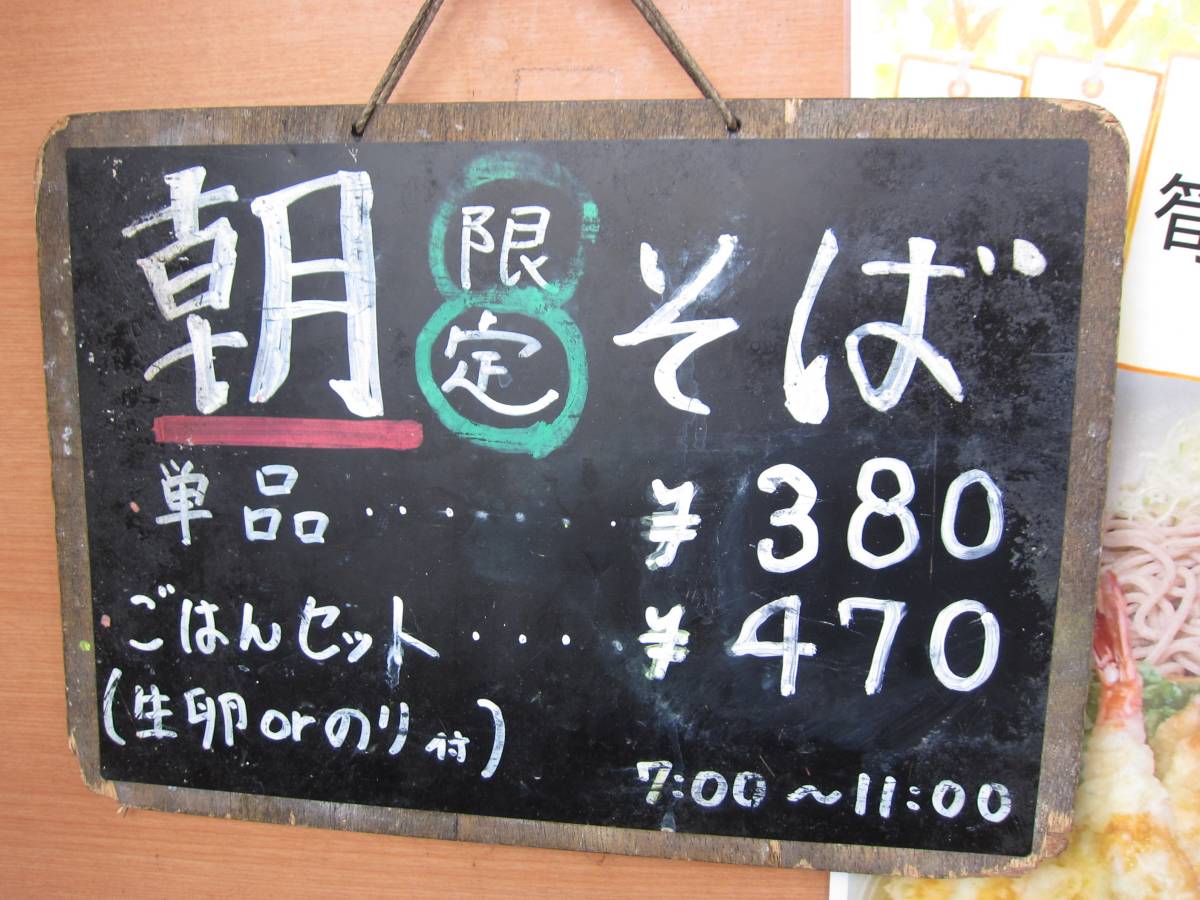 朝限定そば
単品・・・・・・・・¥380
ごはんセット・・・・¥470
(生卵orのり付)
7:00〜11:00